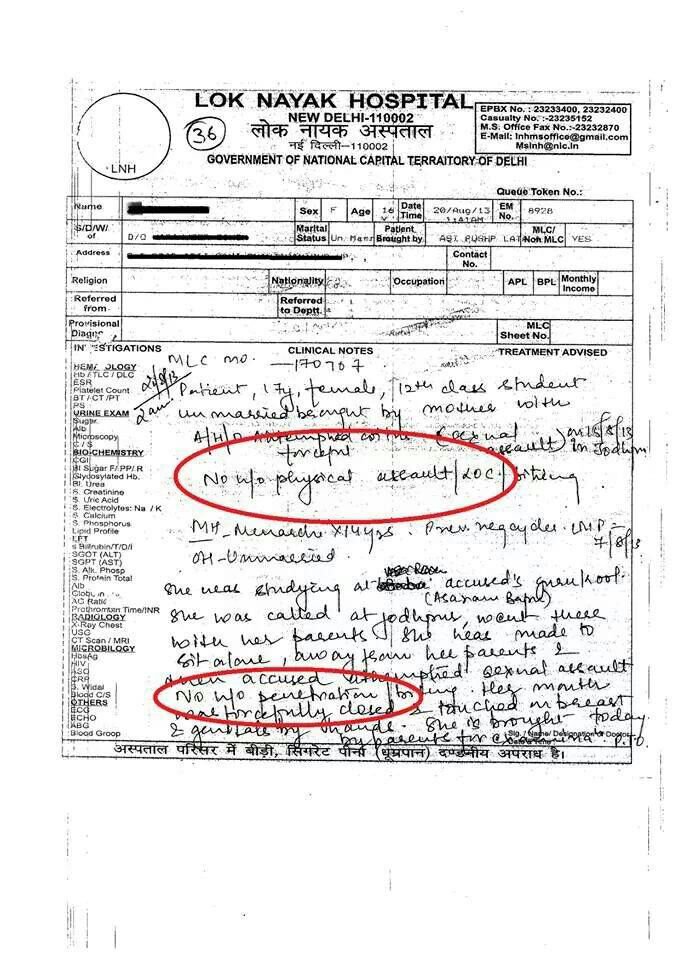 LOK NAYAK HOSPITAL
NEW DELHI-110002
लोक नायक अस्पताल
नई दिल्ली-110002
GOVERNMENT OF NATIONAL CAPITAL TERRAITORY OF DELHI
36
LNH
EPBX No. : 23233400, 23232400
Casualty No.:-23235152
M.S. Office Fax No.:-23232870
E-Mail: lnhmsoffice@gmail.com
Mslnh@nic.in
Queue Token No.:
Name Sex F Age 16 Y Date Time 20/Aug/13 EM No. 8928
S/D/W/ of D/O Marital Status Un Marr Patient Brought by ASI PUSHP LAT MLC/ Non MLC YES
Address Contact No.
Religion Nationality Occupation APL BPL Monthly Income
Referred from Referred to Deptt.
Provisional MLC Sheet No.
CLINICAL NOTES
TREATMENT ADVISED
MLC no. 170767
20/8/13
2am
Patient, 17y, female, 12th class student
unmarried brought by mother with
A/H/O attempted sexual assault on 15/8/13 in Jodhpur
No h/o physical assault / LOC / biting
MH- Menarche x 14yrs. Prev. reg cycles LMP - 7/8/13
OH- Unmarried.
She was studying at accused's gurukool.
(Asaram Bapu)
She was called at jodhpur, went there
with her parents. She was made to
sit alone, away from her parents &
then accused attempted sexual assault
No h/o penetration / biting. Her mouth
was forcefully closed & touched on breast
& genitals by hands. She is brought today
by parents for examina P.T.O
HEMATOLOGY
Hb / TLC / DLC
ESR
Platelet Count
BT / CT / PT
PS
URINE EXAM
Sugar
Alb
Microscopy
C / S
BIO-CHEMISTRY
Bl Sugar F/ PP/ R
Glycosylated Hb.
Bl. Urea
S. Creatinine
S. Uric Acid
S. Electrolytes: Na / K
S. Calcium
S. Phosphorus
Lipid Profile
LFT
s Bilirubin/T/D/I
SGOT (AST)
SGPT (ALT)
S. Alk. Phosp
S. Protein Total
Alb
AG Ratio
Prothrombin Time/INR
RADIOLOGY
X-Ray Chest
USG
CT Scan / MRI
MICROBIOLOGY
HbsAg
HIV
ASO
CRP
S. Widal
Blood C/S
OTHERS
ECG
ECHO
ABG
Blood Group
अस्पताल परिसर में बीड़ी, सिगरेट पीना (धूम्रपान) दण्डनीय अपराध है।